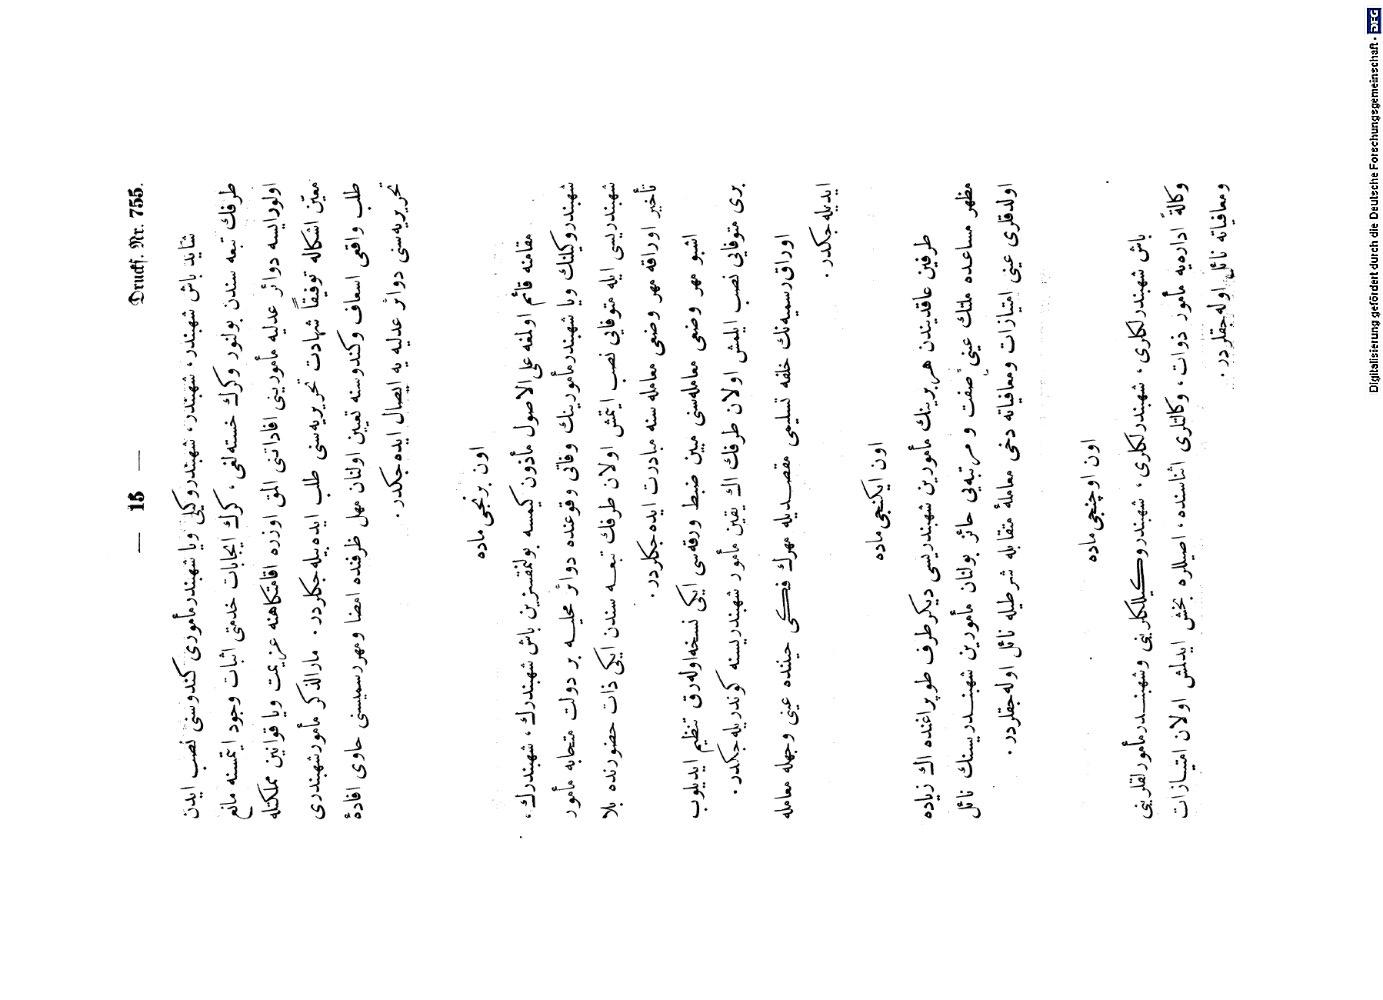 — 15 —
Druckf. Nr. 755.
شاید باش شهبندر، شهبندر، شهبندر وکیلی ویا شهبندر مأموری کندوسنی نصب ایدن
طرفك تبعه سندن بولنور وکرك خسته لغی، کرك ایجابات خدمتی اثبات وجود ایتمسنه مانع
اولورایسه دوائر عدلیه مأمورینی افاداتنی المق اوزره اقامتکاهنه عزیمت ویا قوانین مملکتله
معین اشکاله توفیقاً شهادت تحریریه سنی طلب ایده بیله جکلردر. مارالذکر مأمور شهبندری
طلب واقعی اسعاف وکندوسنه تعیین اولنان مهل ظرفنده امضا ومهر رسمیسنی حاوی افادهٔ
تحریریه سنی دوائر عدلیه یه ایصال ایده جکدر.
اون برنجی ماده
مقامنه قائم اولمغه علی الاصول مأذون کیمسه بولنمقسزین باش شهبندرك، شهبندرك،
شهبندر وکیلنك ویا شهبندر مأمورینك وفاتی وقوعنده دوائر محلیه بر دولت متحابه مأمور
شهبندریسی ایله متوفایی نصب ایتمش اولان طرفك تبعه سندن ایکی ذات حضورنده بلا
تأخیر اوراقه مهر وضعی معامله سنه مبادرت ایده جکلردر.
اشبو مهر وضعی معامله سنی مبین ضبط ورقه سی ایکی نسخه اوله رق تنظیم ایدیلوب
بری متوفایی نصب ایلمش اولان طرفك اك یقین مأمور شهبندریسنه کوندریله جکدر.
اوراق رسمیه نك خلفه تسلیمی مقصدیله مهرك فکی حیننده عینی وجهله معامله
ایدیله جکدر.
اون ایکنجی ماده
طرفین عاقدیندن هر برینك مأمورین شهبندریسی دیکر طرف طوپراغنده اك زیاده
مظهر مساعده ملتك عینی صفت و مرتبه یی حائز بولنان مأمورین شهبندریسنك نائل
اولدقلری عینی امتیازات ومعافیاته دخی معاملهٔ متقابله شرطیله نائل اوله جقلردر.
اون اوچنجی ماده
باش شهبندرلکلری، شهبندرلکلری، شهبندر وکیللکلرینی وشهبندر مأمورلقلرینی
وکالةً اداره یه مأمور ذوات، وکالتلری اثناسنده، اصیللره بخش ایدلمش اولان امتیازات
ومعافیاته نائل اوله جقلردر.
Digitalisierung gefördert durch die Deutsche Forschungsgemeinschaft · DFG